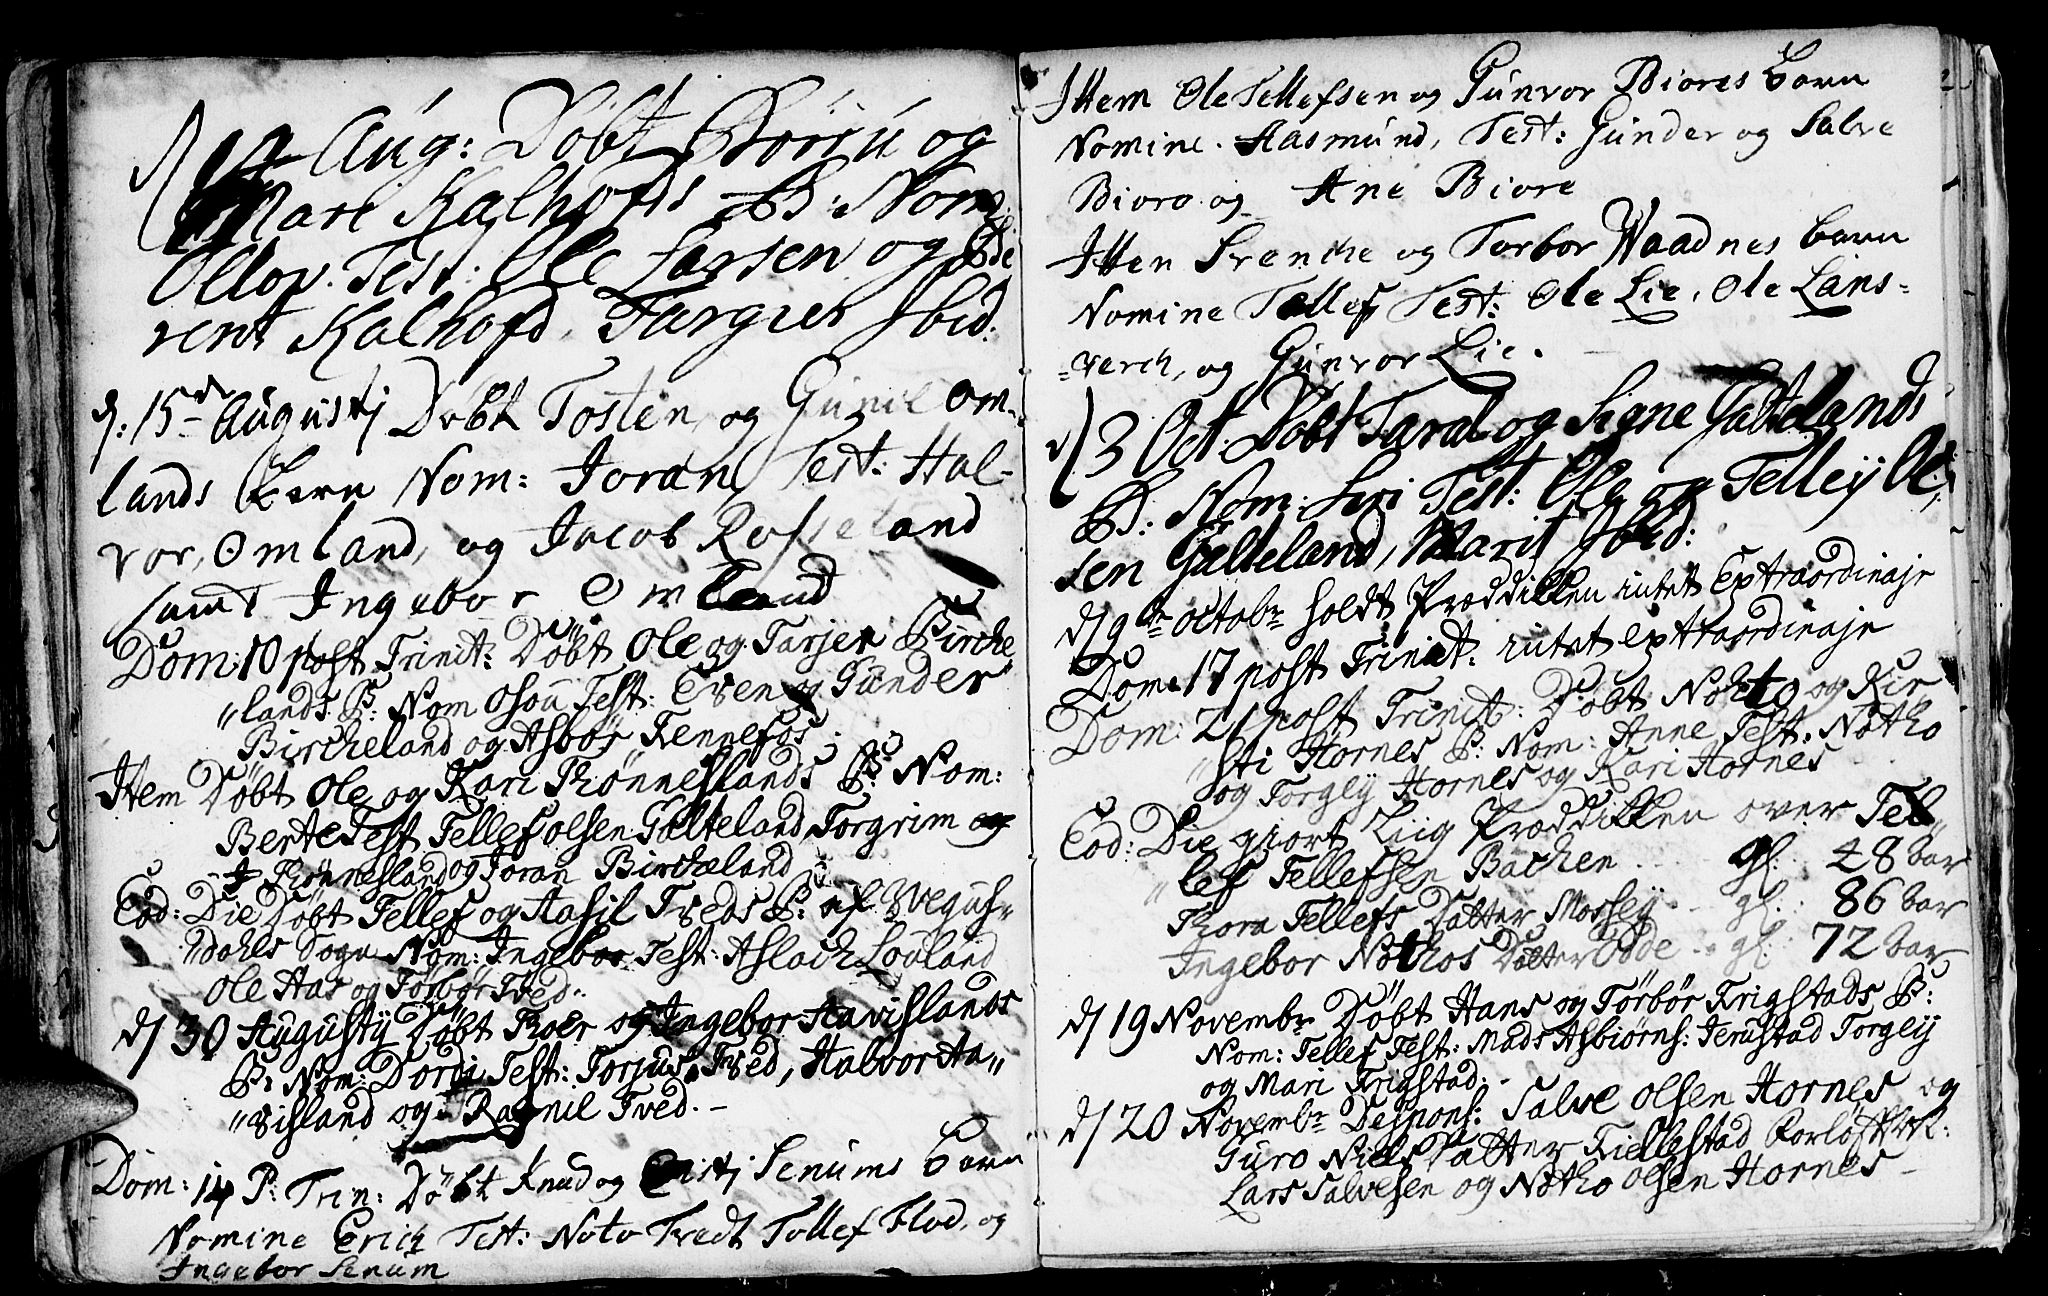 d 14 Aug: Döbt Bøiru og
Mari Kalhofds B: Nom:
Ollov. Test: Ole Larsen og
rent Kalhofd, Targier Ibid:
d: 15de Augustj Döbt Tosten og Gunil Om-
lands Barn Nom: Joran, Test: Hal-
vor, Omland, og Jacob Rosseland
samt Ingebor Omland
Dom: 10 post Trinit: Döbt Ole og Tarjer Birche
"lands B: Nom Osou Test: Even og Gunder
Bircheland og Asbör Fennefos
Item Döbt Ole og Kari Thönneslands B: Nom:
Berte Test Tellef olsen Galteland, Torgrim og
Thönnesland og Joran Bircheland
Eod: Die Döbt Tellef og Aasil Tveds B: af Wegus-
"dahls Sogn Nom: Ingebor Test: Aslach Löuland
Ole Aas og Törbör Tved.
d 30 Augustij Döbt Thoer og Ingebor Haavislands
B: Nom: Dordi Test: Torjus Tved, Halvor Ha-
"visland og Ragnil Tved.-
Dom: 14 P: Trin: Döbt Knud og Cristj Senums Barn
Nomine Erich Test: Noto Tvedt Tollef Flod, og
Ingebor Senum
Item Ole Tellefsen og Gunvor Biores barn
Nomine. Aasmund, Test: Gunder og Salve
Bioro og Ane Biore
Item Svenche og Torbor Waadnes barn
Nomine Tellef Test: Ole Lie, Ole Lans-
-verch, og Gunvor Lie.
d 3 Oct. Döbt Taral og Signe Galtelands
B: Nom: Siri Test: Ole og Telleij Ol-
sen Galteland, Marit Ibid:
d 9de Octobr holdt Prædicken intet Extraordinair
Dom: 17 post Trinit: intet extraordinair
Dom: 21 post Trinit: Döbt Nohto og Kir-
"sti Hornes B: Nom: Anne Test. Notho
og Torgeij Hornes og Kari Hornes
Eod: Die giort Liig Prædicken over Tel-
"lef Tellefsen Bachen gl: 48 har
Thora Tellefs Datter Mossey gl: 86 har
Ingebor Nothos Datter Odde gl: 72 har
d 19 Novembr Döbt Hans og Törbör Frigstads B:
Nom: Tellef Test: Mads Asbiorns: Jerustad Torgeij
og Mari Frigstad.-
d 20 Novembr Despons: Salve olsen Hornes og
Guro Niels Datter Kiellestad
Lars Salvesen og Notho olsen Hornes